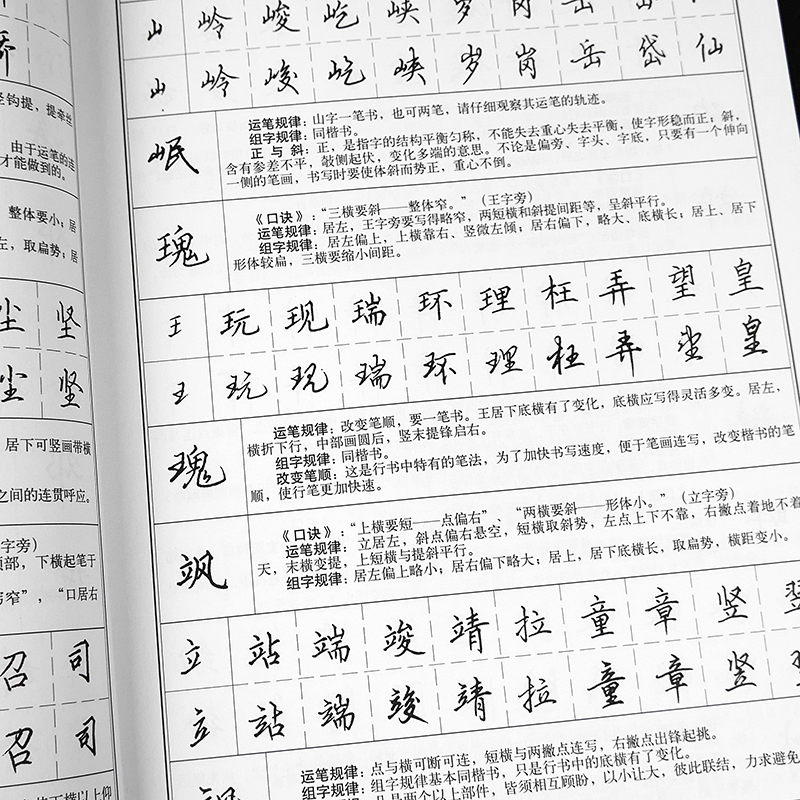 山 岭 峻 屹 峡 岁 岗 岳 岱
山 岭 峻 屹 峡 岁 岗 岳 岱 仙
岷
运笔规律：山字一笔书，也可两笔，请仔细观察其运笔的轨迹。
组字规律：同楷书。
正与斜：正，是指字的结构平衡匀称，不能失去重心失去平衡，使字形稳而正；斜，
含有参差不平，攲侧起伏，变化多端的意思。不论是偏旁、字头、字底，只要有一个伸向
一侧的笔画，书写时要使体斜而势正，重心不倒。
瑰
《口诀》：“三横要斜——整体窄。”（王字旁）
运笔规律：居左，王字旁要写得略窄，两短横和斜提间距等，呈斜平行。
组字规律：居左偏上，上横靠右、竖微左倾；居右偏下，略大、底横长；居上、居下
形体较扁，三横要缩小间距。
王 玩 现 瑞 环 理 枉 弄 望 皇
王 玩 现 瑞 环 理 枉 弄 望 皇
瑰
运笔规律：改变笔顺，要一笔书。王居下底横有了变化，底横应写得灵活多变。居左，
横折下行，中部画圆后，竖末提锋启右。
组字规律：同楷书。
改变笔顺：这是行书中特有的笔法，为了加快书写速度，便于笔画连写，改变楷书的笔
顺，使行笔更加快速。
飒
《口诀》：“上横要短——点偏右”、“两横要斜——形体小。”（立字旁）
运笔规律：立居左，斜点偏右悬空，短横取斜势，左点上下不靠，右撇点着地不着
天，末横变提，上短横与提斜平行。
组字规律：居左偏上略小；居右偏下略大；居上，居下底横长，取扁势，横距变小。
立 站 端 竣 靖 拉 童 章 竖 翌
立 站 端 竣 靖 拉 童 章 竖
飒
运笔规律：点与横可断可连，短横与两撇点连写，右撇点出锋起挑。
组字规律：组字规律基本同楷书，只是行书中的底横有了变化。
凡是两个以上部件，皆须相互顾盼，以小让大，彼此联结，力求避免
径钩提，提牵丝
由于运笔的连
才能做到的。
整体要小；居
左，取扁势；居
尘 坚
尘 坚
居下可竖画带横
之间的连贯呼应。
字旁）
顶部，下横起笔于
窄”，“口居右
召 司
召 司